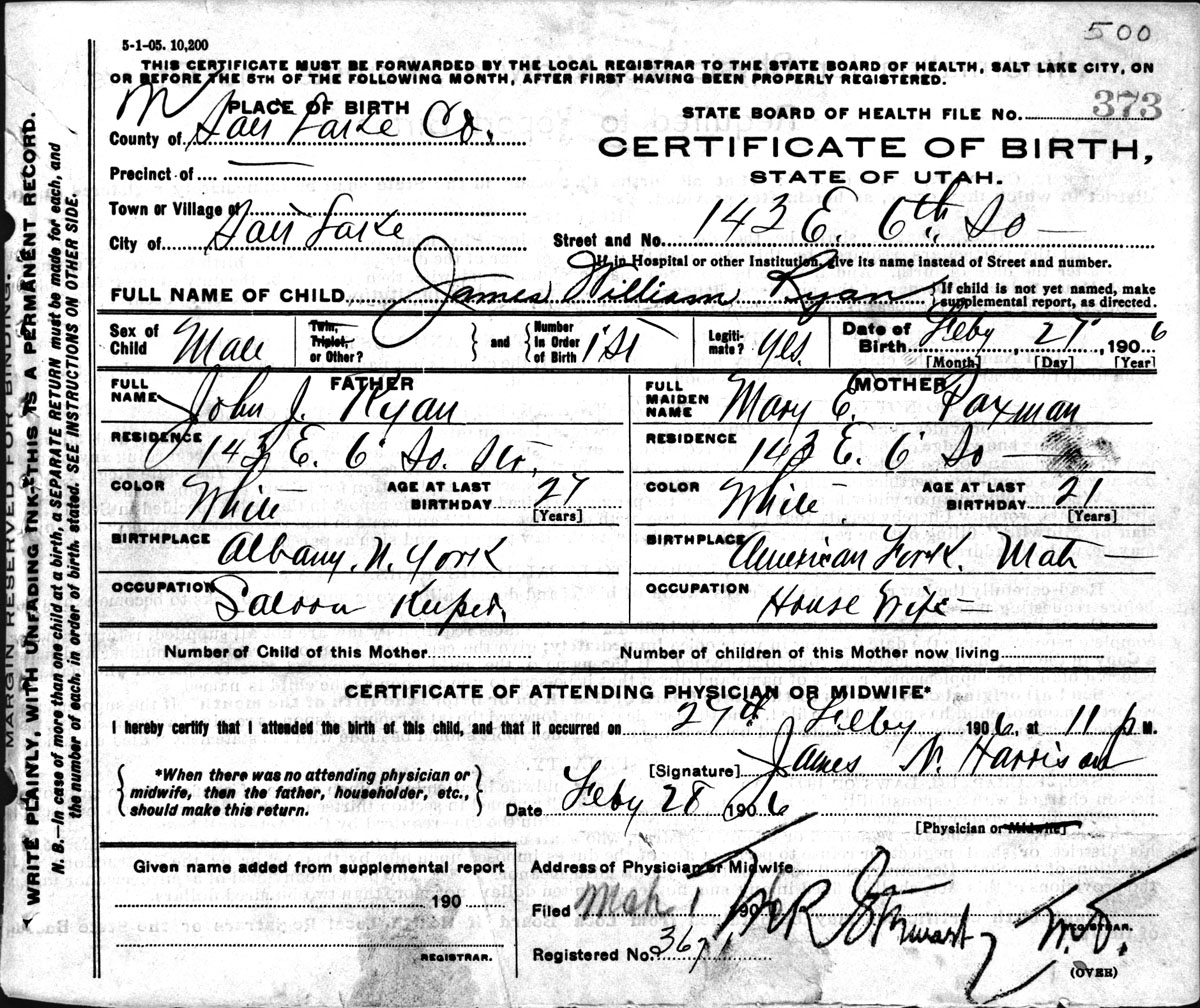 500
5-1-05. 10,200
THIS CERTIFICATE MUST BE FORWARDED BY THE LOCAL REGISTRAR TO THE STATE BOARD OF HEALTH, SALT LAKE CITY, ON
OR BEFORE THE 5TH OF THE FOLLOWING MONTH, AFTER FIRST HAVING BEEN PROPERLY REGISTERED.
MARGIN RESERVED FOR BINDING.
WRITE PLAINLY, WITH UNFADING INK—THIS IS A PERMANENT RECORD.
N. B.—In case of more than one child at a birth, a SEPARATE RETURN must be made for each, and
the number of each, in order of birth, stated. SEE INSTRUCTIONS ON OTHER SIDE.
M PLACE OF BIRTH
STATE BOARD OF HEALTH FILE No. 373
County of Salt Lake Co.
CERTIFICATE OF BIRTH,
Precinct of —
STATE OF UTAH.
Town or Village of
City of Salt Lake
Street and No. 143 E. 6th So —
If in Hospital or other Institution, give its name instead of Street and number.
FULL NAME OF CHILD James William Ryan { If child is not yet named, make
supplemental report, as directed.
Sex of Child Male
Twin, Triplet, or Other? } and { Number in Order of Birth 1st
Legiti- mate? yes.
Date of Birth Feby 27, 1906
[Month] [Day] [Year]
FATHER
FULL NAME John J. Ryan
MOTHER
FULL MAIDEN NAME Mary E. Paxman
RESIDENCE 143 E. 6 So. St.
RESIDENCE 143 E. 6 So —
COLOR White AGE AT LAST BIRTHDAY 27 [Years]
COLOR White AGE AT LAST BIRTHDAY 21 [Years]
BIRTHPLACE Albany. N. York
BIRTHPLACE American Fork. Utah
OCCUPATION Saloon Keeper
OCCUPATION House Wife
Number of Child of this Mother
Number of children of this Mother now living
CERTIFICATE OF ATTENDING PHYSICIAN OR MIDWIFE*
I hereby certify that I attended the birth of this child, and that it occurred on 27th Feby 1906, at 11 p M.
{ *When there was no attending physician or
midwife, then the father, householder, etc.,
should make this return. }
[Signature] James N. Harrison
Date Feby 28 1906
[Physician or Midwife]
Given name added from supplemental report
190
REGISTRAR.
Address of Physician or Midwife
Filed Mch 1 190
REGISTRAR.
M.D.
Registered No. 367
(OVER)